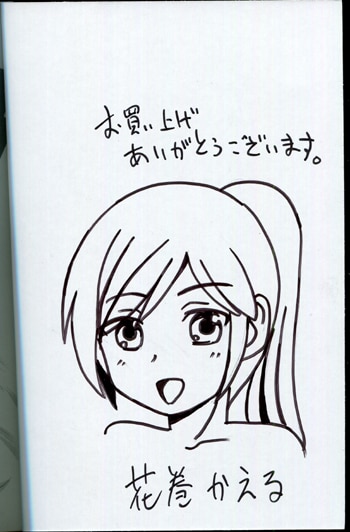 お買い上げ
ありがとうございます。
花巻かえる